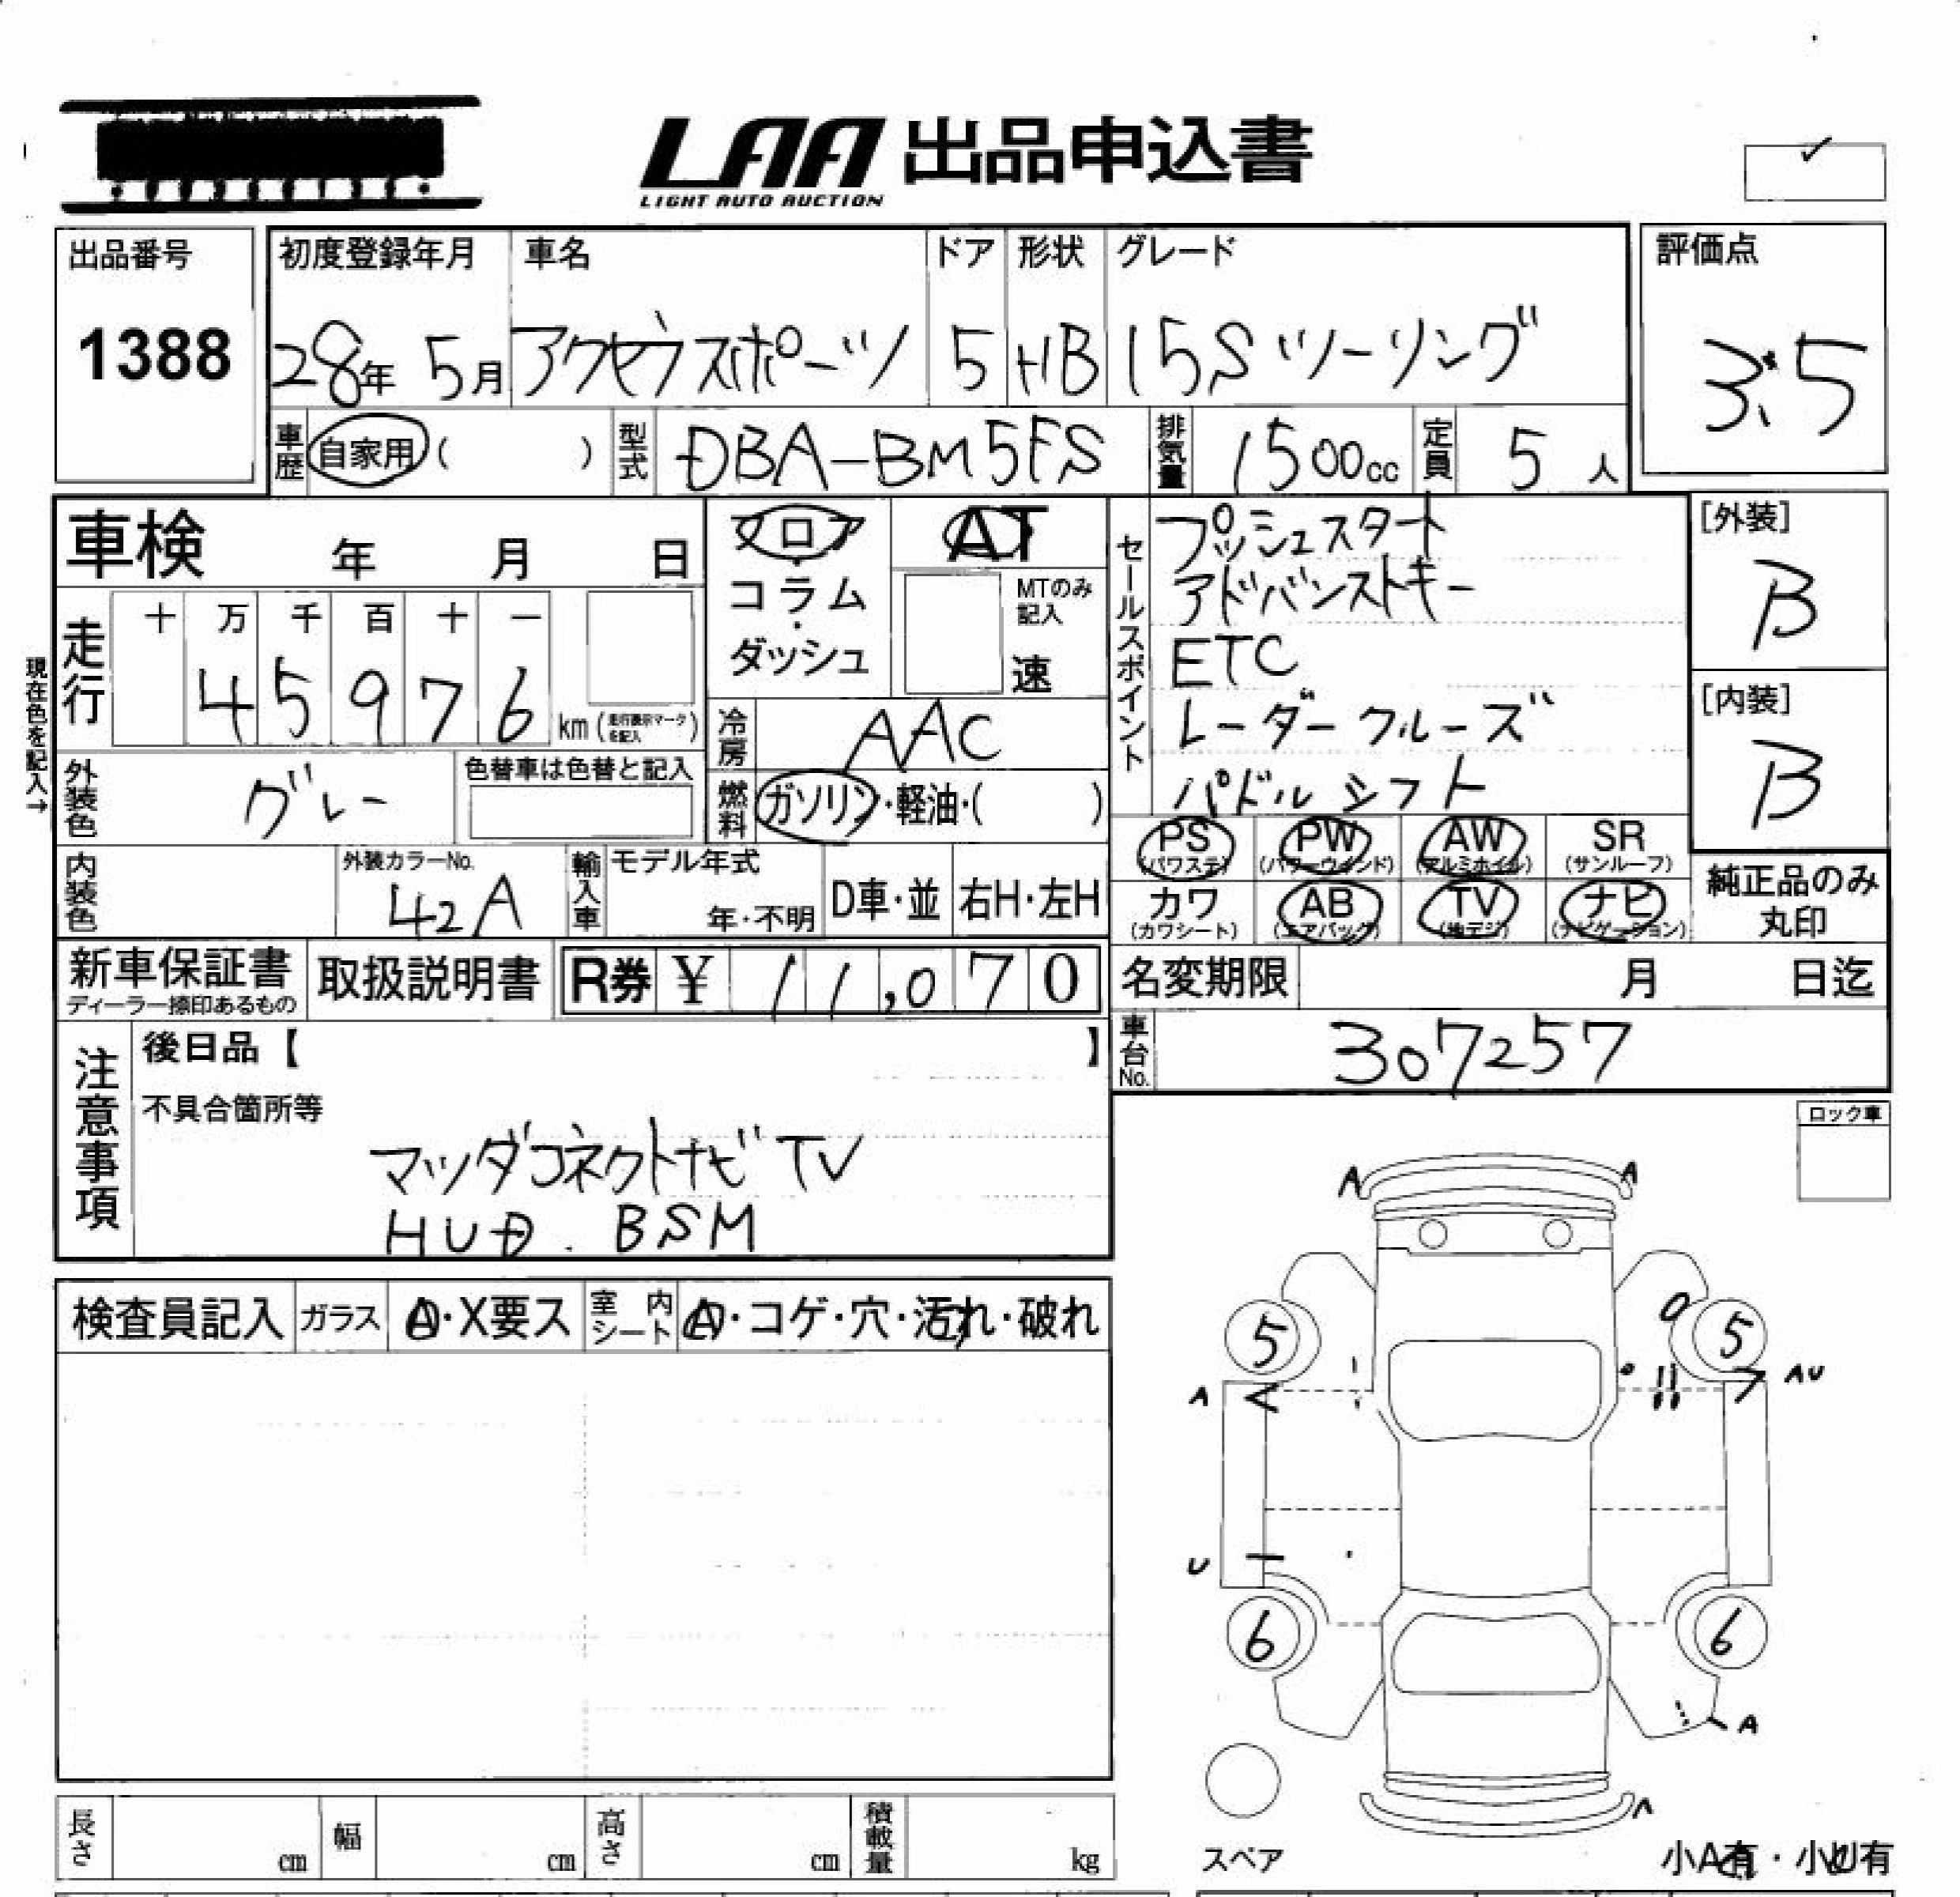 LAA 出品申込書
LIGHT AUTO AUCTION
出品番号
1388
初度登録年月 車名 ドア 形状 グレード
28年 5月 アクセラスポーツ 5 HB 15Sツーリング
評価点
3.5
車歴 自家用 ( ) 型式 DBA-BM5FS 排気量 1500cc 定員 5人
車検 年 月 日
フロア・コラム・ダッシュ
AT
MTのみ記入
速
セールスポイント
プッシュスタート
アドバンストキー
ETC
レーダークルーズ
パドルシフト
[外装]
B
[内装]
B
現在色を記入→
走行 十 万 千 百 十 一
45976 km (走行表示マークを記入)
冷房 AAC
外装色 グレー 色替車は色替と記入
燃料 ガソリン・軽油・( )
PS (パワステ) PW (パワーウインド) AW (アルミホイル) SR (サンルーフ)
カワ (カワシート) AB (エアバッグ) TV (地デジ) ナビ (ナビゲーション)
純正品のみ丸印
内装色 外装カラーNo. 42A 輸入車 モデル年式 年・不明 D車・並 右H・左H
新車保証書 ディーラー捺印あるもの 取扱説明書 R券 ¥ 11,070
名変期限 月 日迄
車台No. 307257
注意事項
後日品【 】
不具合箇所等
マツダコネクトナビTV
HUD. BSM
ロック車
検査員記入 ガラス A・X要ス 室内シート A・コゲ・穴・汚れ・破れ
A A
5 5
A AU
U
6 6
A
A
スペア
小A有・小U有
長さ cm 幅 cm 高さ cm 積載量 kg